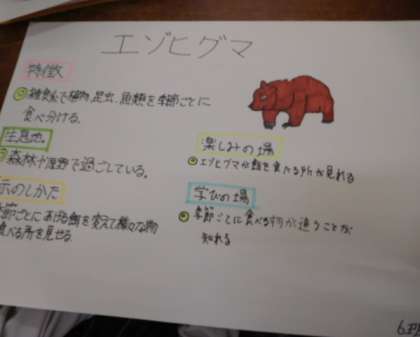 エゾヒグマ
特徴
雑食で植物、昆虫、魚類を季節ごとに
食べ分ける。
生息地
森林や原野で過ごしている。
示のしかた
節ごとにあげる餌を変えて様々な物
食べる所を見せる。
楽しみの場
エゾヒグマが餌を食べる所が見れる
学びの場
季節ごとに食べる物が違うことが
知れる